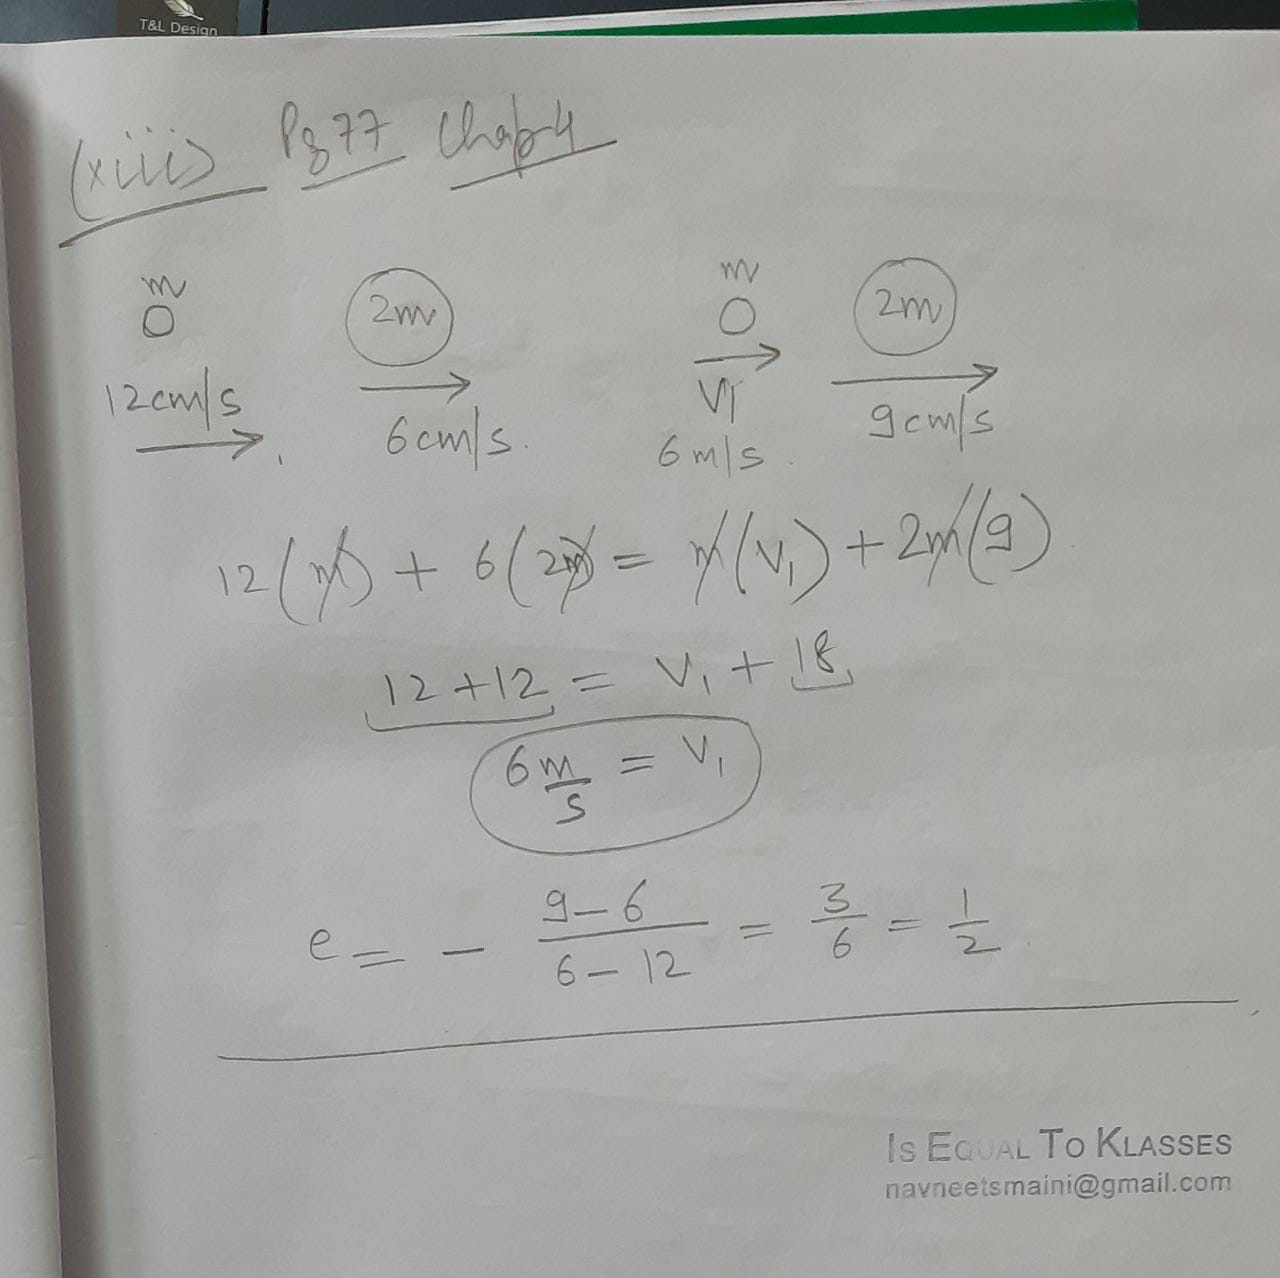 T&L Design
(xiii) Pg 77 Chap 4
m 2m m 2m
12cm/s 6cm/s. V1 9cm/s
6 m/s.
12(m) + 6(2m) = m(V1) + 2m(9)
12+12 = V1 + 18
6 m/s = V1
e = - 9-6/6-12 = 3/6 = 1/2
IS EQUAL TO KLASSES
navneetsmaini@gmail.com